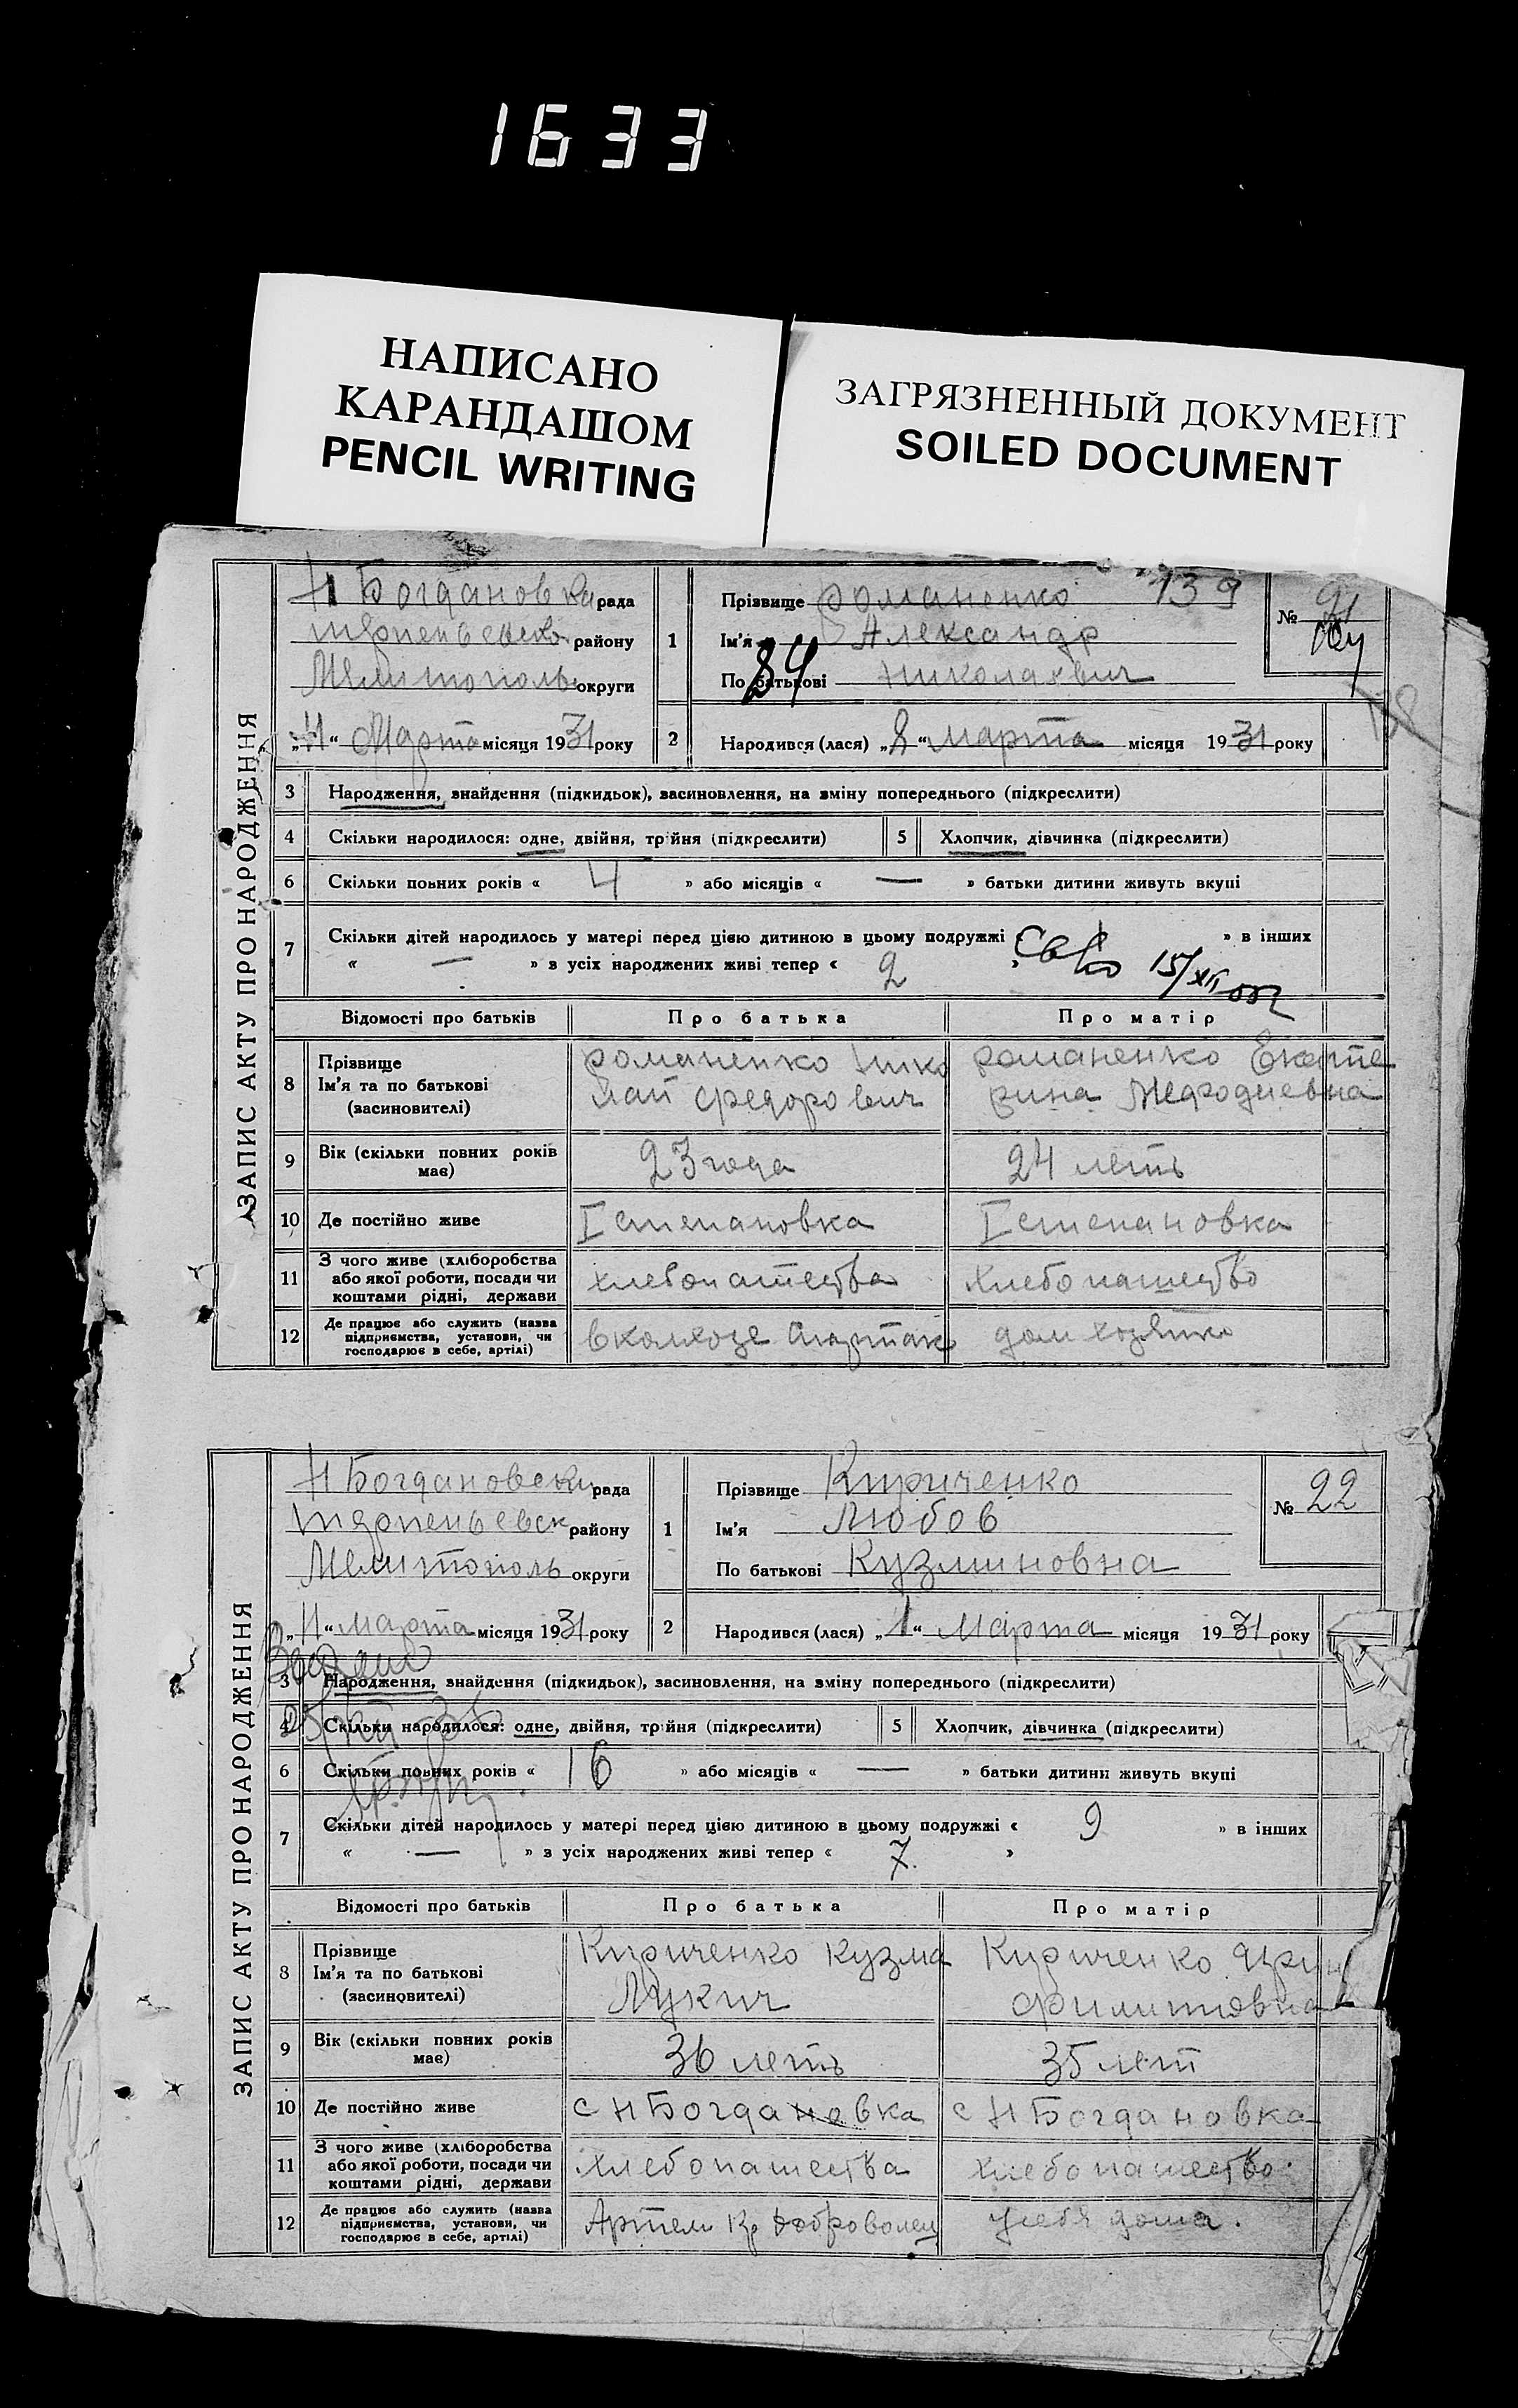 1633
НАПИСАНО
КАРАНДАШОМ
PENCIL WRITING
ЗАГРЯЗНЕННЫЙ ДОКУМЕНТ
SOILED DOCUMENT
ЗАПИС АКТУ ПРО НАРОДЖЕННЯ
Н Богдановка рада
района району
Мелитополь округи
„11“ Марта місяця 1931 року
1
Прізвище Романенко 139
Ім'я Александр
84
По батькові Николаевич
№ 21
2 Народився (лася) „8“ марта місяця 1931 року
3 Народження, знайдення (підкидьок), засиновлення, на зміну попереднього (підкреслити)
4 Скільки народилося: одне, двійня, трійня (підкреслити) 5 Хлопчик, дівчинка (підкреслити)
6 Скільки повних років « 4 » або місяців « — » батьки дитини живуть вкупі
7 Скільки дітей народилось у матері перед цією дитиною в цьому подружжі « » в інших
« — » з усіх народжених живі тепер « 2 »
15/XII
Відомості про батьків Про батька Про матір
8 Прізвище Ім'я та по батькові (засиновителі)
Романенко Нико
лай Федорович
Романенко Екате
рина Мефодиевна
9 Вік (скільки повних років має) 23 года 24 леть
10 Де постійно живе I степановка I степановка
11 З чого живе (хліборобства або якої роботи, посади чи коштами рідні, держави хлебопашества хлебопашество
12 Де працює або служить (назва підприємства, установи, чи господарює в себе, артілі) в колхозе дом хозяйка
ЗАПИС АКТУ ПРО НАРОДЖЕННЯ
Н Богдановски рада
Тярпеньевск району
Мелитополь округи
„11“ марта місяця 1931 року
1
Прізвище Кириченко
Ім'я Любов
По батькові Кузминовна
№ 22
2 Народився (лася) „1“ марта місяця 1931 року
3 Народження, знайдення (підкидьок), засиновлення, на зміну попереднього (підкреслити)
4 Скільки народилося: одне, двійня, трійня (підкреслити) 5 Хлопчик, дівчинка (підкреслити)
6 Скільки повних років « 16 » або місяців « — » батьки дитини живуть вкупі
7 Скільки дітей народилось у матері перед цією дитиною в цьому подружжі « 9 » в інших
« — » з усіх народжених живі тепер « 7. »
Відомості про батьків Про батька Про матір
8 Прізвище Ім'я та по батькові (засиновителі)
Кириченко Кузма
Лукич
Кириченко
Филиповна
9 Вік (скільки повних років має) 36 леть 35 лет
10 Де постійно живе с Н Богдановка с Н Богдановка
11 З чого живе (хліборобства або якої роботи, посади чи коштами рідні, держави хлебопашества хлебопашество
12 Де працює або служить (назва підприємства, установи, чи господарює в себе, артілі) Артели Кр доброволец у себя дома.